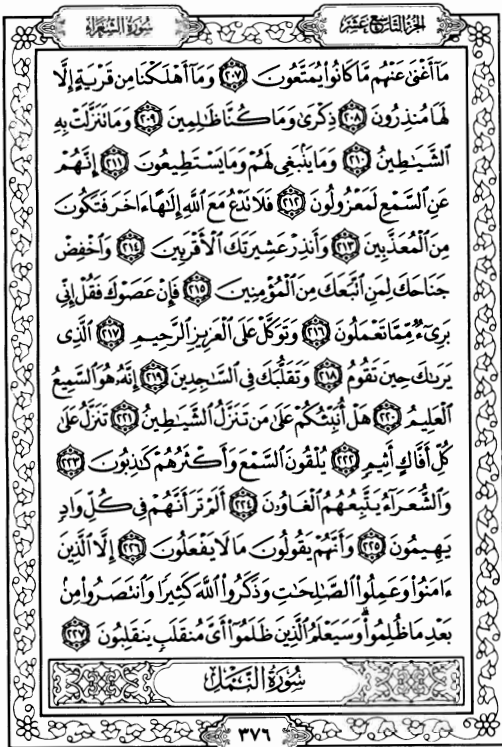 الجزء التاسع عشر
سورة الشعراء
مَآ أَغْنَىٰ عَنْهُم مَّا كَانُوا۟ يُمَتَّعُونَ ٢٠٧ وَمَآ أَهْلَكْنَا مِن قَرْيَةٍ إِلَّا
لَهَا مُنذِرُونَ ٢٠٨ ذِكْرَىٰ وَمَا كُنَّا ظَـٰلِمِينَ ٢٠٩ وَمَا تَنَزَّلَتْ بِهِ
ٱلشَّيَـٰطِينُ ٢١٠ وَمَا يَنۢبَغِى لَهُمْ وَمَا يَسْتَطِيعُونَ ٢١١ إِنَّهُمْ
عَنِ ٱلسَّمْعِ لَمَعْزُولُونَ ٢١٢ فَلَا تَدْعُ مَعَ ٱللَّهِ إِلَـٰهًا ءَاخَرَ فَتَكُونَ
مِنَ ٱلْمُعَذَّبِينَ ٢١٣ وَأَنذِرْ عَشِيرَتَكَ ٱلْأَقْرَبِينَ ٢١٤ وَٱخْفِضْ
جَنَاحَكَ لِمَنِ ٱتَّبَعَكَ مِنَ ٱلْمُؤْمِنِينَ ٢١٥ فَإِنْ عَصَوْكَ فَقُلْ إِنِّى
بَرِىٓءٌ مِّمَّا تَعْمَلُونَ ٢١٦ وَتَوَكَّلْ عَلَى ٱلْعَزِيزِ ٱلرَّحِيمِ ٢١٧ ٱلَّذِى
يَرَىٰكَ حِينَ تَقُومُ ٢١٨ وَتَقَلُّبَكَ فِى ٱلسَّـٰجِدِينَ ٢١٩ إِنَّهُۥ هُوَ ٱلسَّمِيعُ
ٱلْعَلِيمُ ٢٢٠ هَلْ أُنَبِّئُكُمْ عَلَىٰ مَن تَنَزَّلُ ٱلشَّيَـٰطِينُ ٢٢١ تَنَزَّلُ عَلَىٰ
كُلِّ أَفَّاكٍ أَثِيمٍ ٢٢٢ يُلْقُونَ ٱلسَّمْعَ وَأَكْثَرُهُمْ كَـٰذِبُونَ ٢٢٣
وَٱلشُّعَرَآءُ يَتَّبِعُهُمُ ٱلْغَاوُۥنَ ٢٢٤ أَلَمْ تَرَ أَنَّهُمْ فِى كُلِّ وَادٍ
يَهِيمُونَ ٢٢٥ وَأَنَّهُمْ يَقُولُونَ مَا لَا يَفْعَلُونَ ٢٢٦ إِلَّا ٱلَّذِينَ
ءَامَنُوا۟ وَعَمِلُوا۟ ٱلصَّـٰلِحَـٰتِ وَذَكَرُوا۟ ٱللَّهَ كَثِيرًا وَٱنتَصَرُوا۟ مِنۢ
بَعْدِ مَا ظُلِمُوا۟ ۗ وَسَيَعْلَمُ ٱلَّذِينَ ظَلَمُوٓا۟ أَىَّ مُنقَلَبٍ يَنقَلِبُونَ ٢٢٧
سورة النمل
٣٧٦